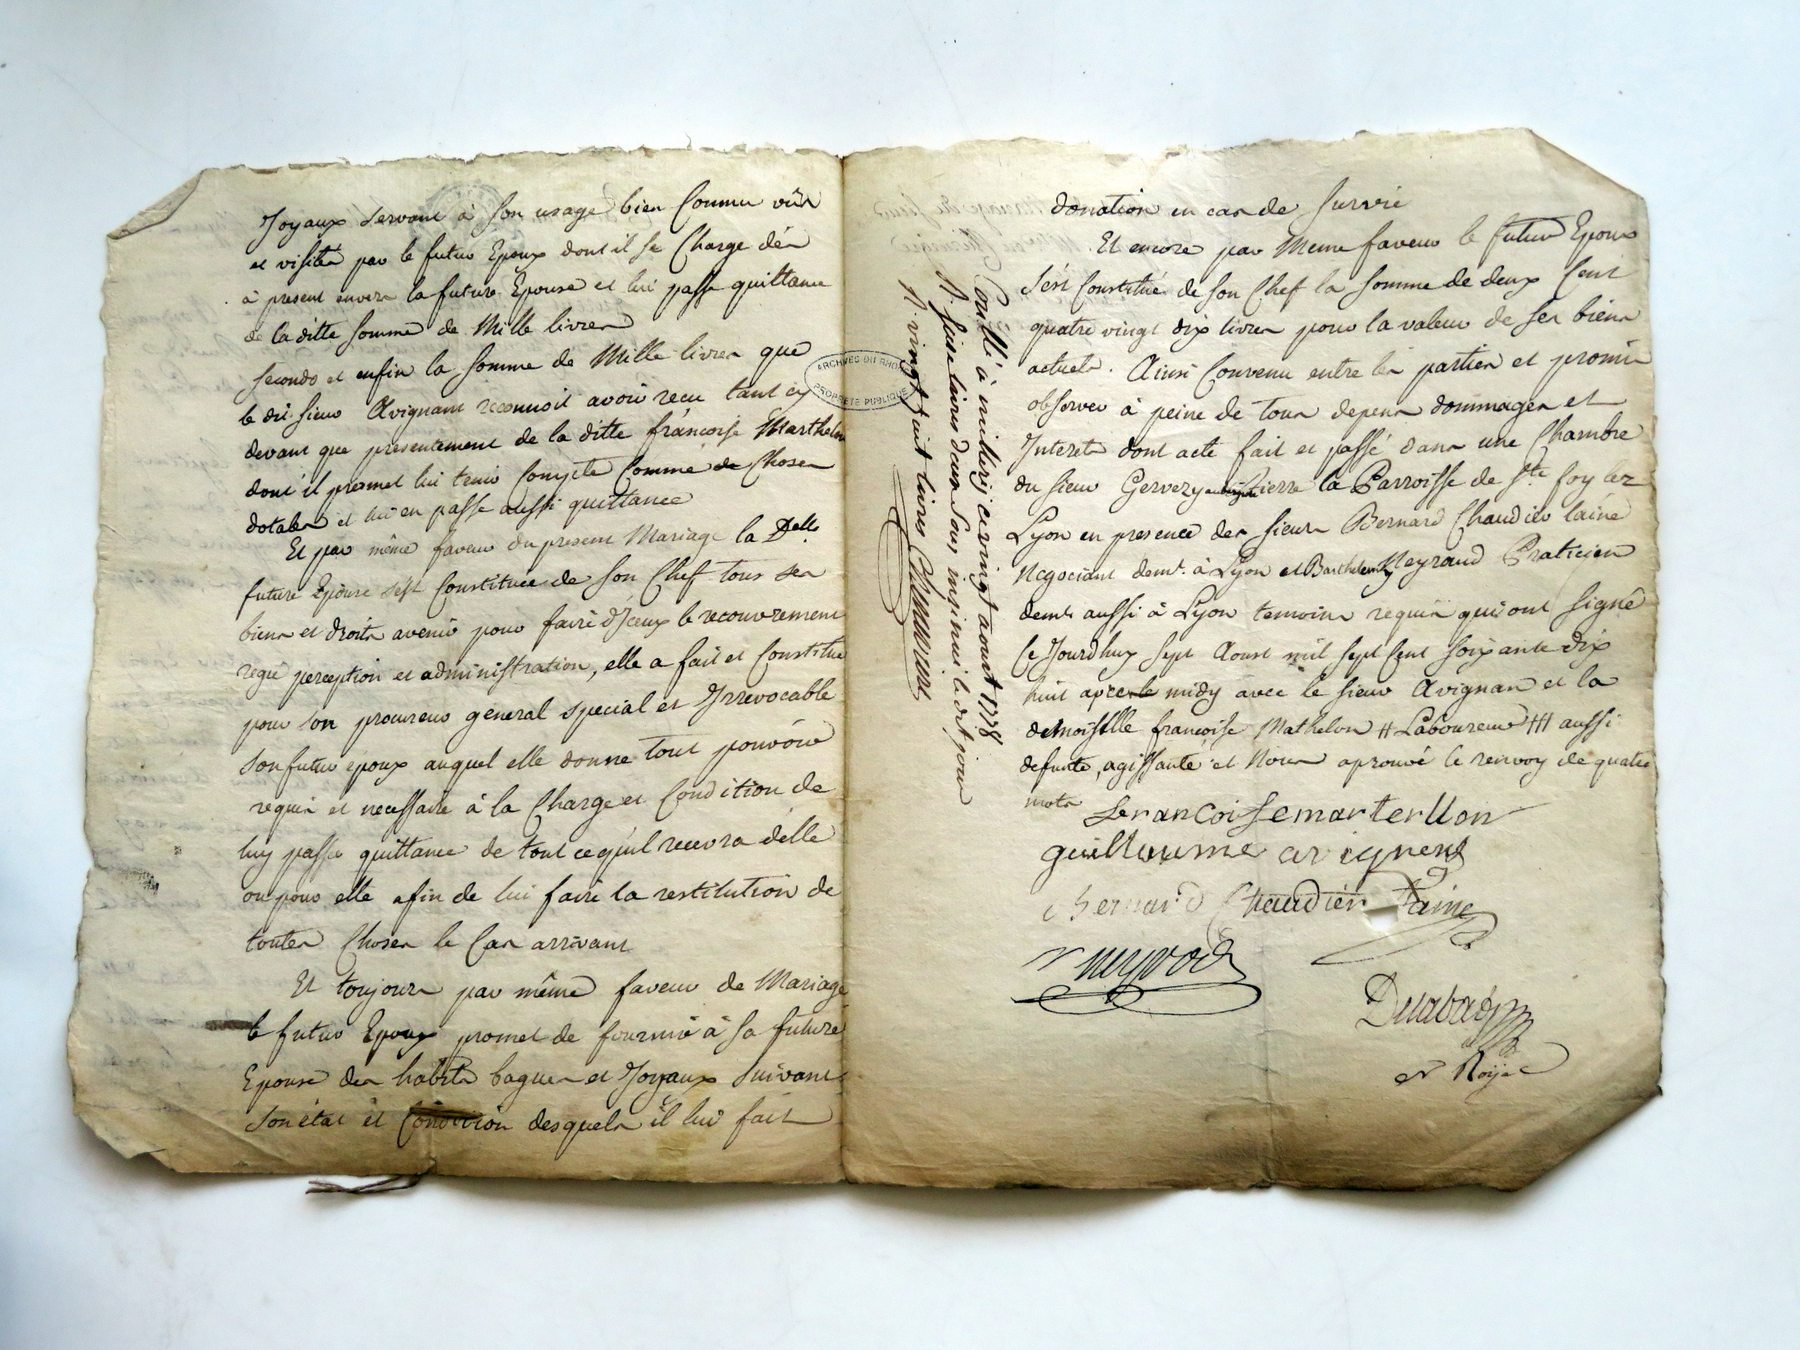 Joyaux servant à son usage bien Connu vûs
et visités par le futur Epoux dont il se Charge dés
à present envers la future Epouse et lui passe quittance
de la ditte somme de Mille livres
secondo et enfin la somme de Mille livres que
le dit sieur Avignant reconnoit avoir recu tant cy
devant que presentement de la ditte françoise Marthelon
dont il promet lui tenir Compte Comme de Choses
dotales et lui en passe aussi quittance
Et par même faveur du present Mariage la Delle
future Epouse s'est Constituée de son Chef tous ses
biens et droits avenir pour faire d'Jceux le recouvrement
regie perception et administration, elle a fait et Constitue
pour son procureur general special et Jrrevocable
son futur epoux auquel elle donne tout pouvoir
requis et necessaire à la Charge et Condition de
luy passer quittance de tout ce qu'il recevra d'elle
ou pour elle afin de lui faire la restitution de
toutes Choses le Cas arrivant
Et toujours par même faveur de Mariage
le futur Epoux promet de fournir à sa future
Epouse des habits bagues et Joyaux suivant
son état et Condition desquels il lui fait
ARCHIVES DU RHONE
PROPRIETE PUBLIQUE
Controllé à millery ce vingt aoust 1778
R. seize livres deux sous, insinué le dit jour
R. vingt huit livres
donation en cas de survie
Et encore par Meme faveur le futur Epoux
s'est Constitué de son Chef la somme de deux Cent
quatre vingt dix livres pour la valeur de ses biens
actuels. Ainsi Convenu entre les parties et promis
observer à peine de tous depens dommages et
Jnterets dont acte fait et passé dans une Chambre
du sieur Gervezy Pierre la Parroisse de Ste foy lez
Lyon en presence des sieurs Bernard Chaudier l'ainé
Negociant demt. à Lyon et Barthelemy Meyraud Praticien
demt aussi à Lyon temoins requis qui ont signé
Ce Jourdhuy sept Aoust mil sept Cent soixante dix
huit apres le midy avec le sieur Avignan et la
demoiselle françoise Mathelon # Laboureur ### aussi
defunte, agissante et Nous aprouvé le renvoy de quatre
mots
francoise marterllon
guillaume avignent
Bernard Chaudier l'aine